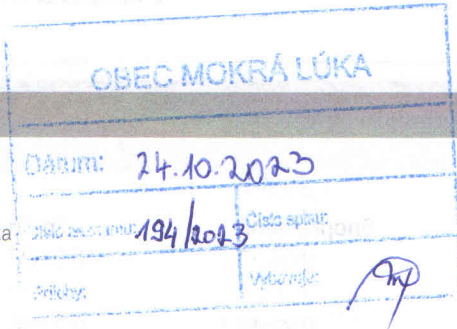 OBEC MOKRÁ LÚKA
Dátum: 24.10.2023
Číslo záznamu: 194/2023 Číslo spisu:
Prílohy: Vybavuje: